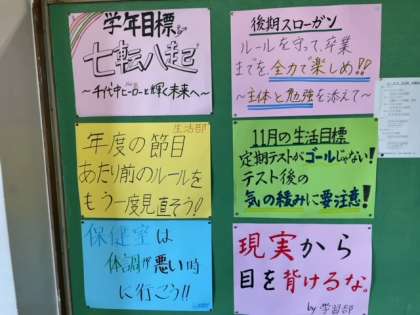 学年目標
七転八起
～千代中ヒーローと輝く未来へ～
生活部
年度の節目
あたり前のルールを
もう一度見直そう!!
保健室は
体調が悪い時
に行こう!!
後期スローガン
ルールを守って、卒業
までを、全力で楽しめ!!
～主体と勉強を添えて～
11月の生活目標
定期テストがゴールじゃない!
テスト後の
気の緩みに要注意!
現実から
目を背けるな。
by 学習部